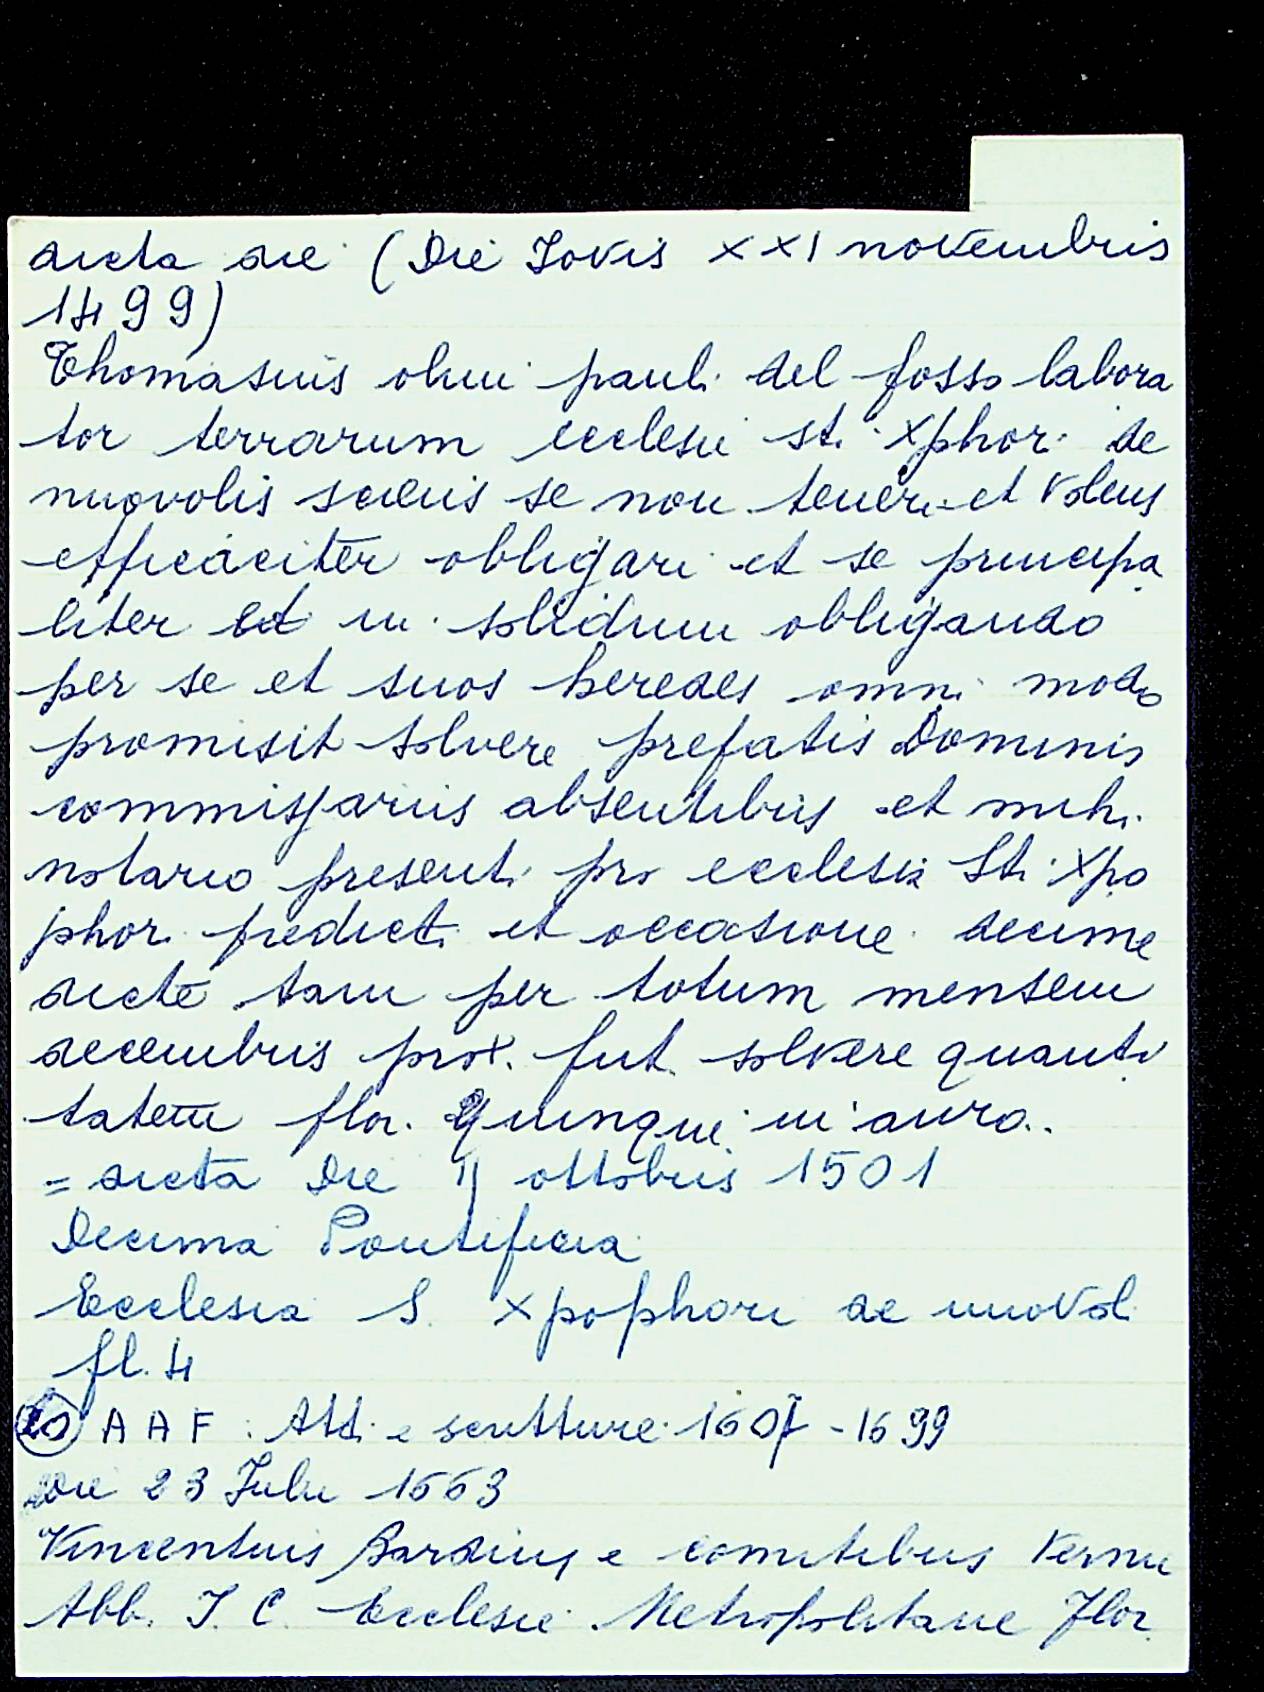 dicta die (Die Jovis XXI novembris
1499)
Thomasius olim pauli del fosso labora
tor terrarum ecclesie sti Xphori de
nuovolis sciens se non teneri et volens
efficaciter obligari et se principa
liter et in solidum obligando
per se et suos heredes omni modo
promisit solvere prefatis Dominis
commissariis absentibus et mihi
notario presenti pro ecclesia Sti Xpo
phori predicti et occasione decime
dicte tam per totum mensem
decembris prox. fut. solvere quanti
tatem flor. Quinque in auro..
= dicta Die 11 ottobris 1501
Decima Pontificia
Ecclesia S. Xpophori de nuovol
fl. 4
20 A A F : Atti e scritture 1607 - 1699
Die 23 Julii 1663
Vincentius Bardius e comitibus Vernii
Abb. J. C. Ecclesie Metropolitane Flor.